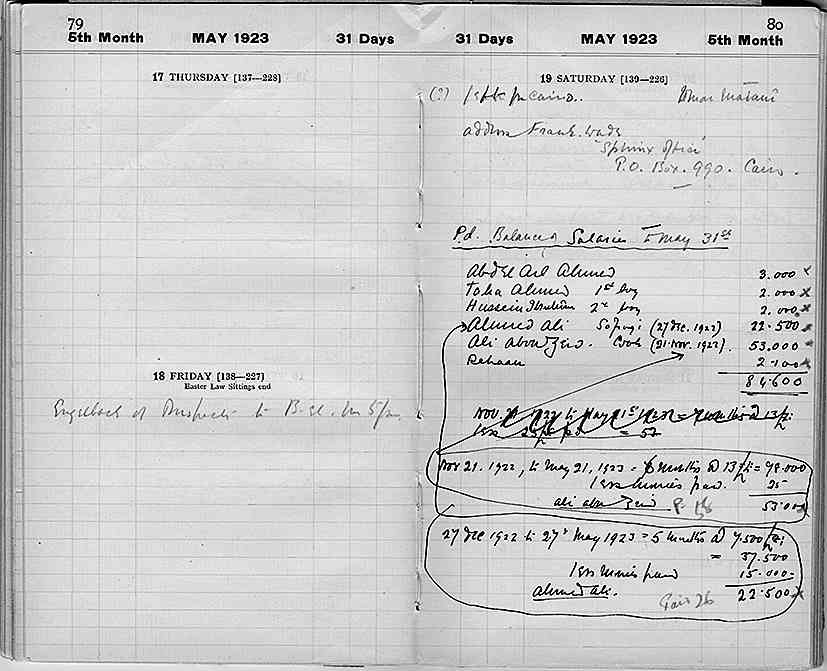 79
5th Month MAY 1923 31 Days
17 THURSDAY [137—228]
18 FRIDAY [138—227]
Easter Law Sittings end
Engelbach to B. el. M 5/
80
31 Days MAY 1923 5th Month
19 SATURDAY [139—226]
(?) left for Cairo.
address Frank. Wade
"Sphinx Office"
P.O. Box. 990. Cairo.
Pd. Balance of Salaries to May 31st
Abd El Ahmed 3.000 x
Taha Ahmed 1st boy 2.000 x
Hussein Ibrahim 2nd boy 2.000 x
Ahmed Ali (27 Dec. 1922) 22.500 x
Ali abou Zeid. Cook (21 Nov. 1922). 53.000 x
Rehaan 2.100 x
84.600
Nov 21. 1922, to May 21, 1923 = 6 months @ 13 = 78.000
less monies paid. 25
Ali abu Zeid 53.000
27 Dec 1922 to 27th May 1923 = 5 months @ 7500
= 37.500
less monies paid 15.000
Ahmed Ali. 22.500 x